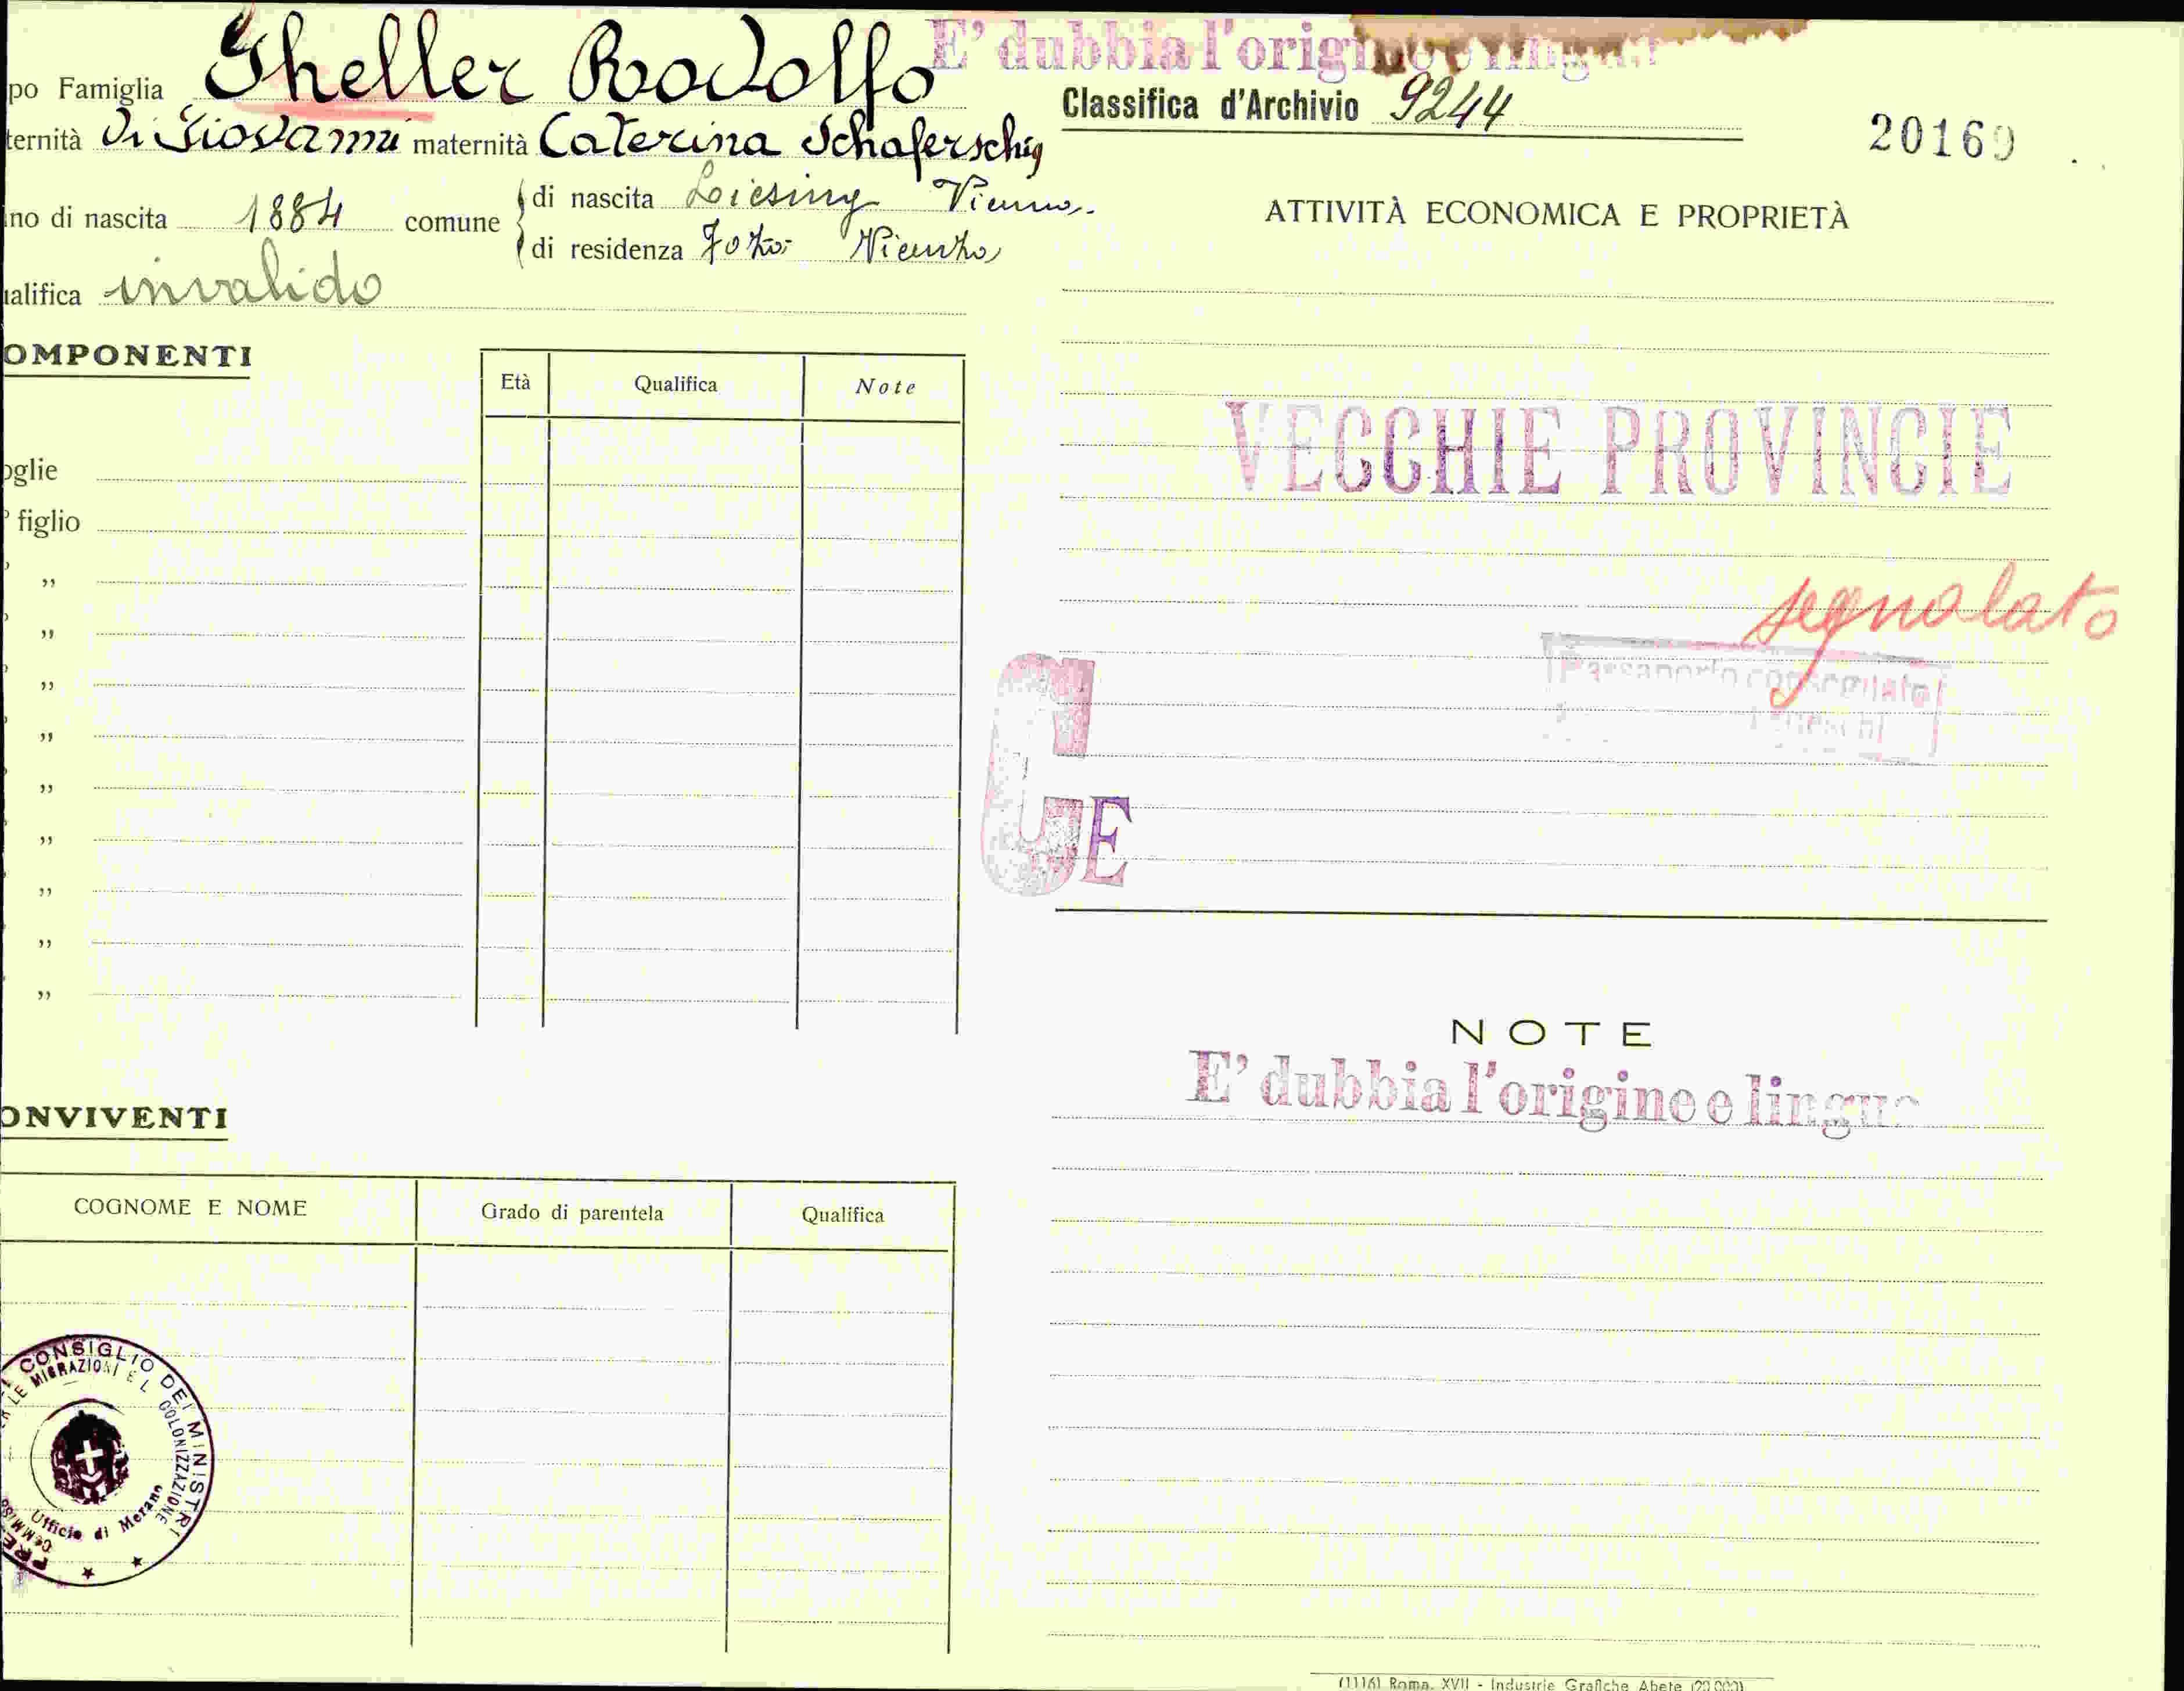 E' dubbia l'origi
po Famiglia Gheller Rodolfo
Classifica d'Archivio 9244
20169
ternità di Giovanni maternità Caterina Schaferschig
no di nascita 1884 comune di nascita Liesing Vienna
di residenza Foza Vicenza
ualifica invalido
ATTIVITÀ ECONOMICA E PROPRIETÀ
OMPONENTI
Età Qualifica Note
VECCHIE PROVINCIE
oglie
figlio
"
segnalato
"
Passaporto consegnato
"
"
"
"
G E
"
"
"
NOTE
E' dubbia l'origine e lingua
ONVIVENTI
COGNOME E NOME Grado di parentela Qualifica
CONSIGLIO DEI MINISTRI
LE MIGRAZIONI E L COLONIZZAZIONE
Ufficio di Merano
PRE
(1116) Roma, XVII - Industrie Grafiche Abete (20.000)